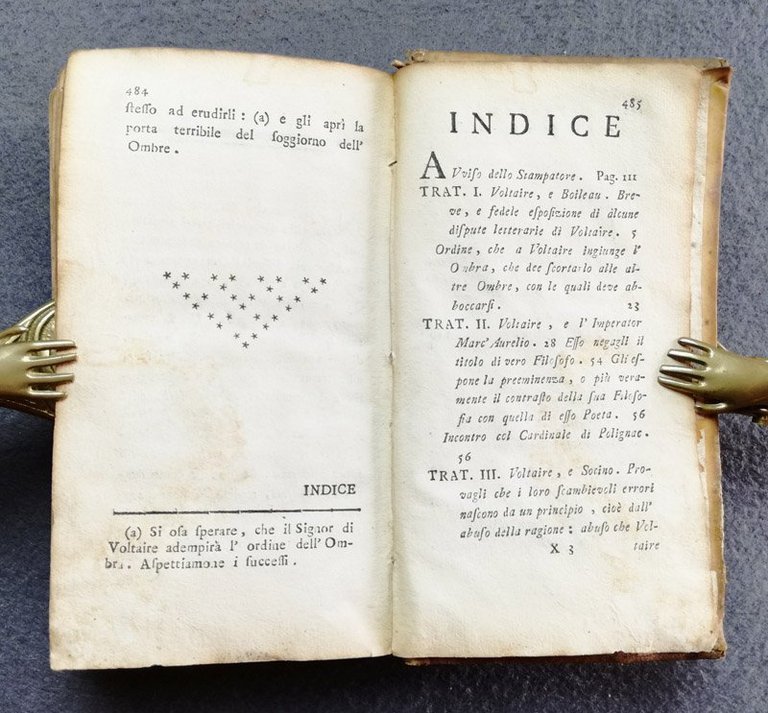 484
ſteſſo ad erudirli : (a) e gli aprì la
porta terribile del ſoggiorno dell'
Ombre .
INDICE
(a) Si oſa ſperare , che il Signor di
Voltaire adempirà l' ordine dell' Om-
bra. Aſpettiamone i ſucceſſi .
485
INDICE
AVviſo dello Stampatore . Pag. III
TRAT. I. Voltaire , e Boileau . Bre-
ve , e fedele eſpoſizione di alcune
diſpute letterarie di Voltaire . 5
Ordine , che a Voltaire ingiunge l'
Ombra , che dee ſcortarlo alle al-
tre Ombre , con le quali deve ab-
boccarſi . 23
TRAT. II. Voltaire , e l' Imperator
Marc' Aurelio . 28 Eſſo negagli il
titolo di vero Filoſofo . 54 Gli eſ-
pone la preeminenza , o più vera-
mente il contraſto della ſua Filoſo-
fia con quella di eſſo Poeta . 56
Incontro col Cardinale di Polignac .
56
TRAT. III. Voltaire , e Socino . Pro-
vagli che i loro ſcambievoli errori
naſcono da un principio , cioè dall'
abuſo della ragione : abuſo che Vol-
X 3 taire